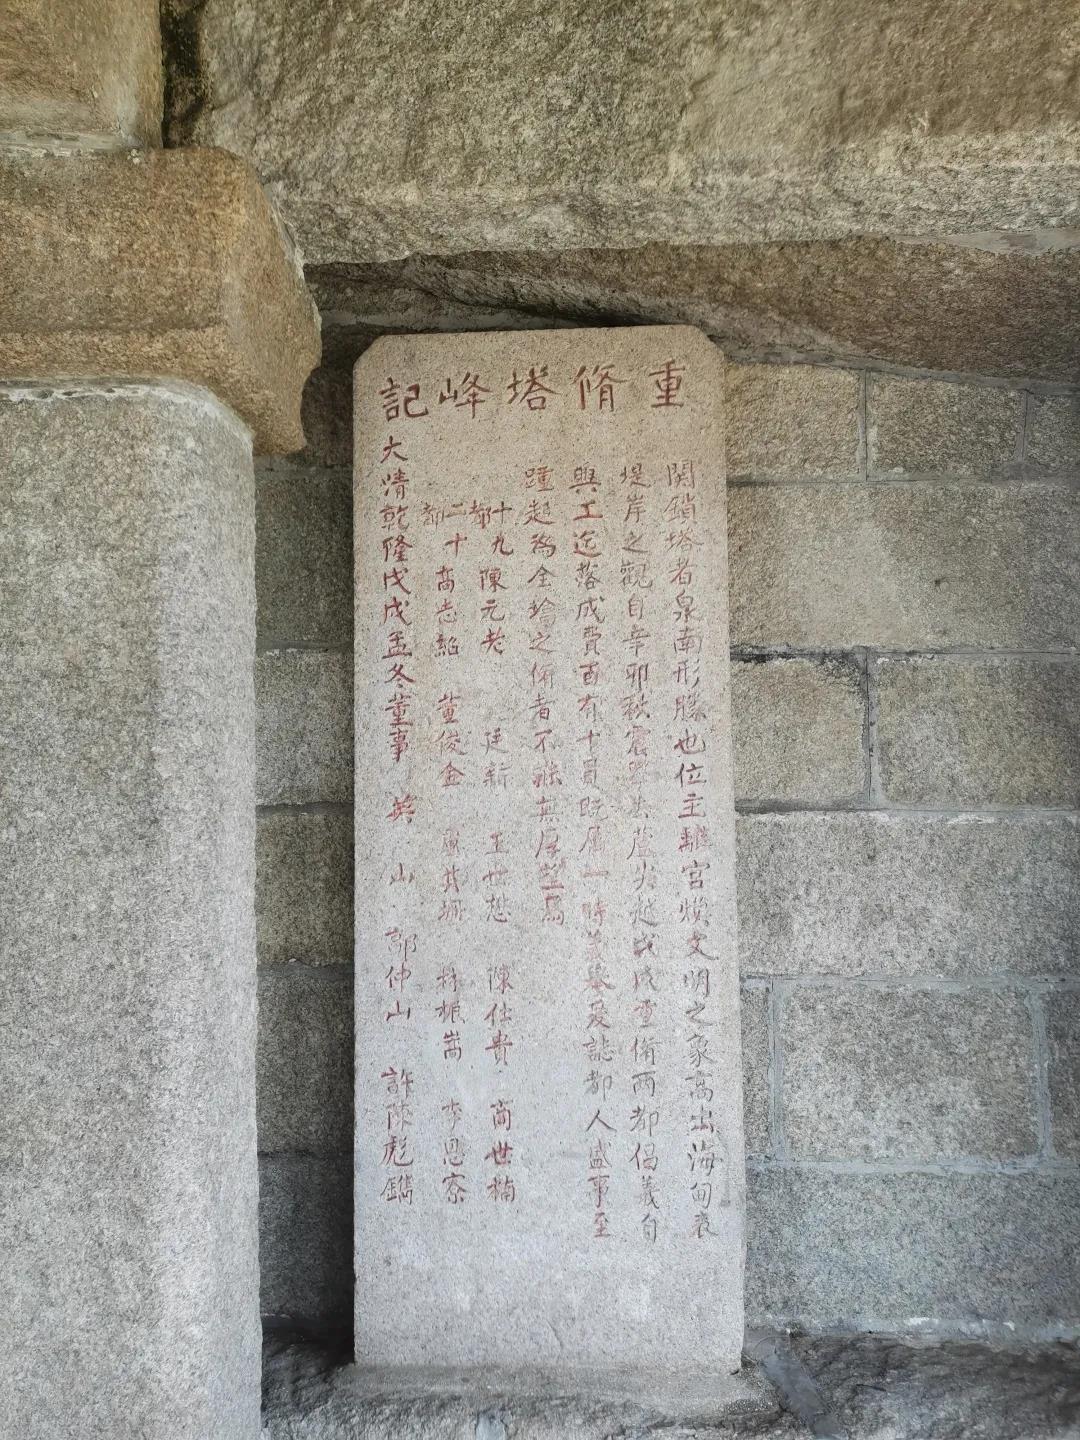 重脩塔峰記
関鎖塔者泉南形勝也位主離宮煥文明之象高出海甸表
堤岸之觀自辛卯秋震去蘆尖越戊戌重脩兩都倡義自
興工迄落成費百有十員既屬一時義舉爰誌都人盛事至
踵起為全塔之脩者不無厚望焉
十九都 陳元老 廷新 王世愁 陳仕貴 商世楠
二十都 高志紹 董俊金 林振嵩 李恩寮
大清乾隆戊戌孟冬董事 英山 郭仲山 許陳彪鐫